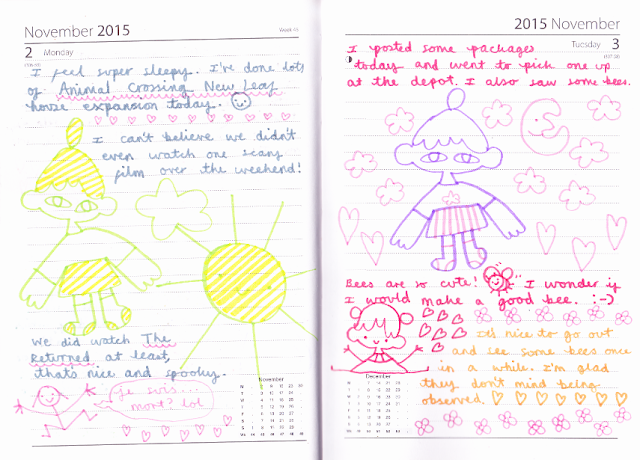 November 2015
2 Monday
I feel super sleepy. I've done lots
of Animal Crossing New Leaf
house expansion today.
I can't believe we didn't
even watch one scary
film over the weekend!
We did watch The
Returned at least,
thats nice and spooky.
Je suis....
mort? lol
November
2015 November
Tuesday 3
I posted some packages
today and went to pick one up
at the depot. I also saw some bees.
Bees are so cute! I wonder if
I would make a good bee. :-)
It's nice to go out
and see some bees once
in a while. I'm glad
they don't mind being
observed.
December